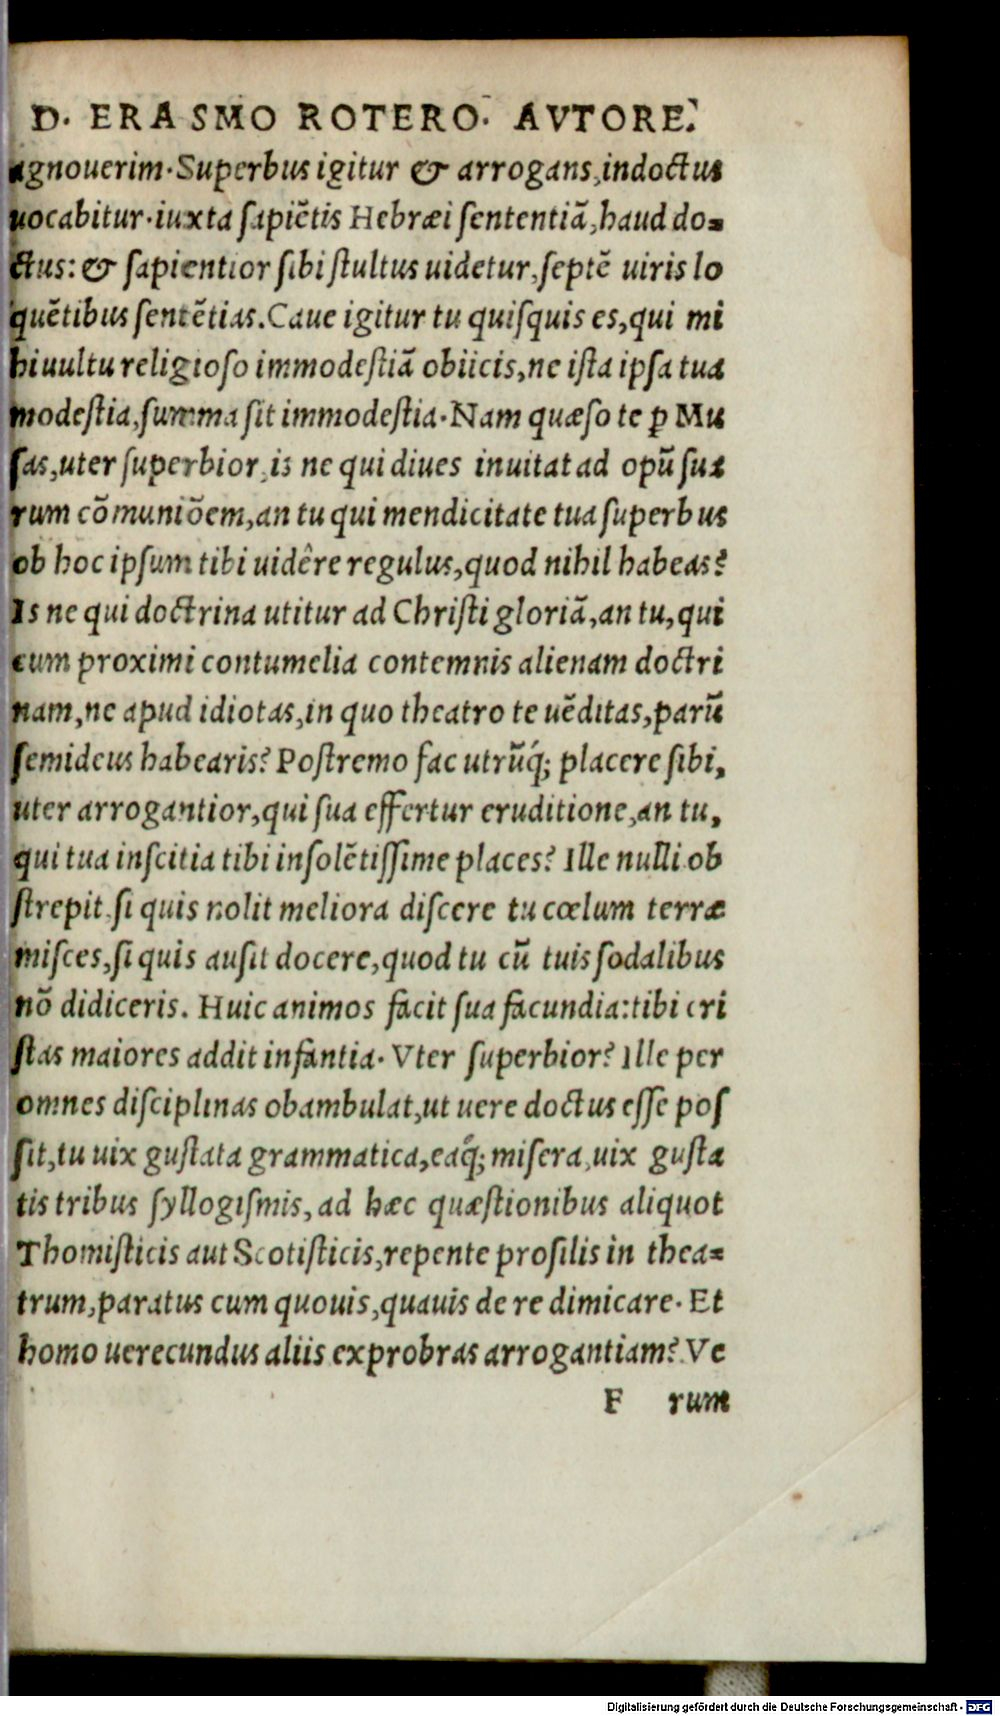 D. ERASMO ROTERO. AVTORE.
agnouerim. Superbus igitur & arrogans, indoctus
uocabitur. iuxta sapiẽtis Hebræi sententiã, haud do-
ctus: & sapientior sibi stultus uidetur, septẽ uiris lo
quẽtibus sentẽtias. Caue igitur tu quisquis es, qui mi
hi uultu religioso immodestiã obiicis, ne ista ipsa tua
modestia, summa sit immodestia. Nam quæso te ꝑ Mu
sas, uter superbior, is ne qui diues inuitat ad opũ sua
rum cõmuniõem, an tu qui mendicitate tua superbus
ob hoc ipsum tibi uidêre regulus, quod nihil habeas?
Is ne qui doctrina utitur ad Christi gloriã, an tu, qui
cum proximi contumelia contemnis alienam doctri
nam, ne apud idiotas, in quo theatro te uẽditas, parũ
semideus habearis? Postremo fac utrũq́; placere sibi,
uter arrogantior, qui sua effertur eruditione, an tu,
qui tua inscitia tibi insolẽtissime places? Ille nulli ob
strepit, si quis nolit meliora discere tu cœlum terræ
misces, si quis ausit docere, quod tu cũ tuis sodalibus
nõ didiceris. Huic animos facit sua facundia: tibi cri
stas maiores addit infantia. Vter superbior? Ille per
omnes disciplinas obambulat, ut uere doctus esse pos
sit, tu uix gustata grammatica, eaq́; misera, uix gusta
tis tribus syllogismis, ad hæc quæstionibus aliquot
Thomisticis aut Scotisticis, repente prosilis in thea-
trum, paratus cum quouis, quauis de re dimicare. Et
homo uerecundus aliis exprobras arrogantiam? Ve
F rum
Digitalisierung gefördert durch die Deutsche Forschungsgemeinschaft - DFG